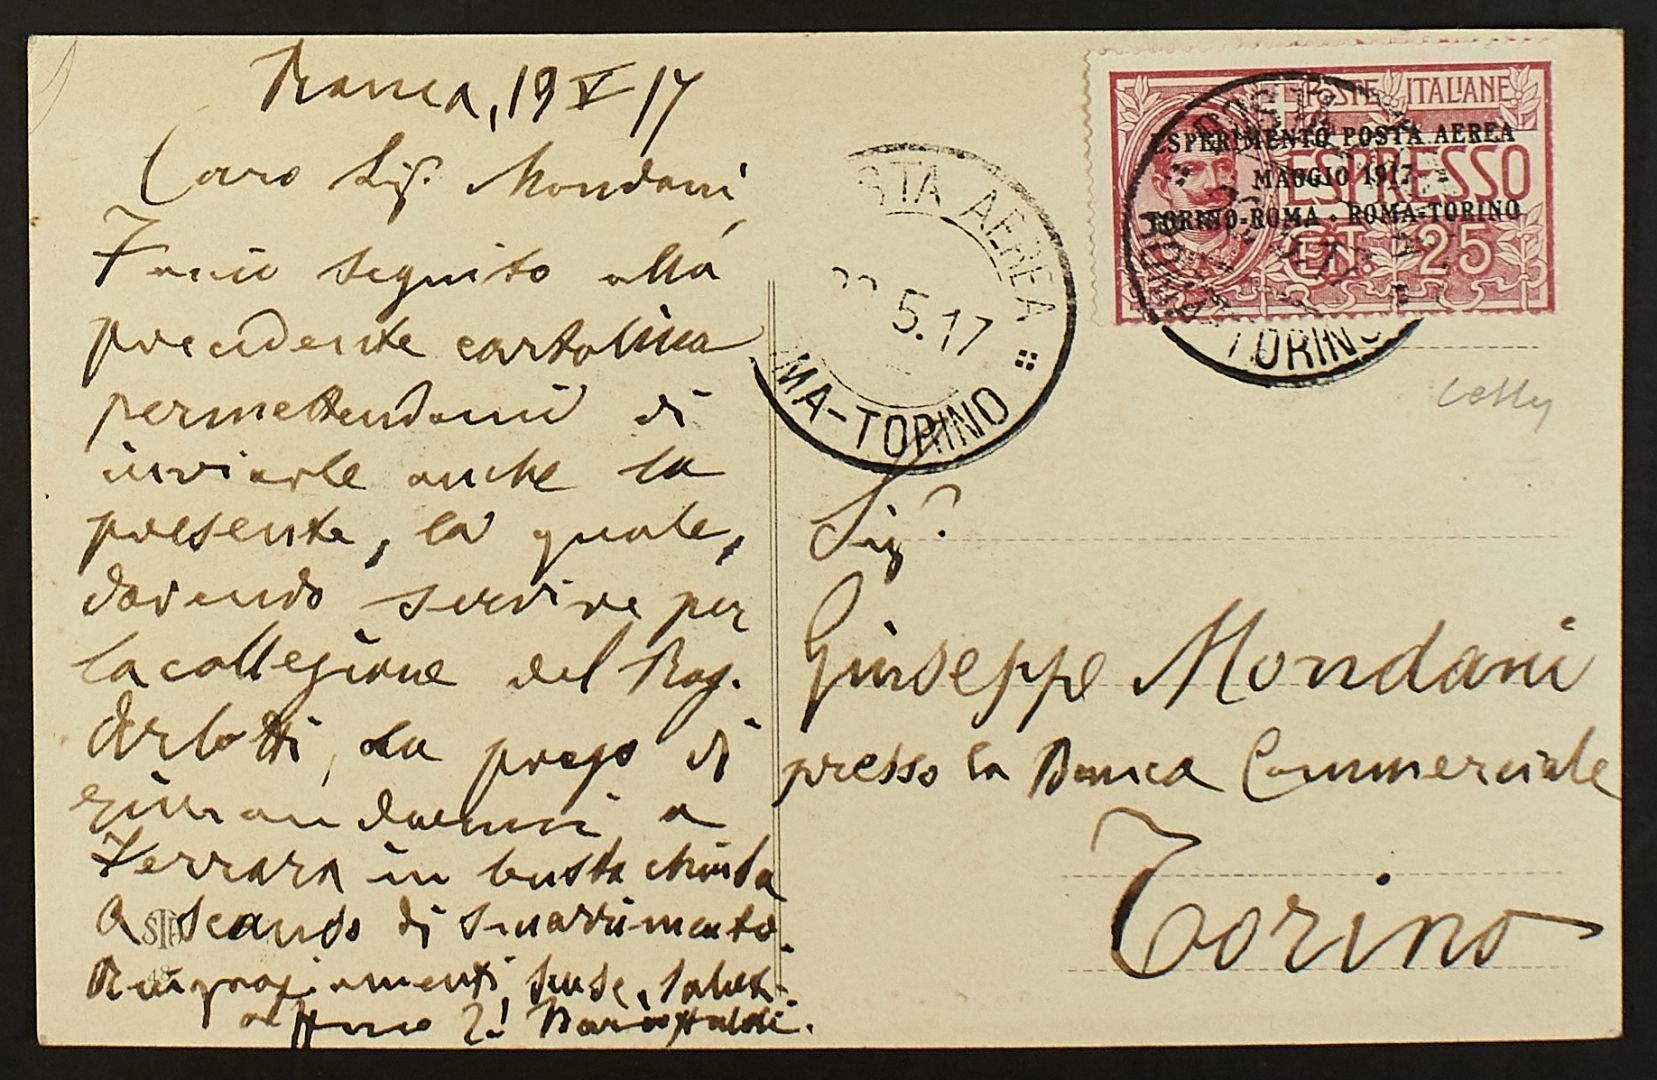 19 V 17
Caro Sig. Mondani,
Faccio seguito alla
precedente cartolina
permettendomi di
inviarle anche la
presente, la quale,
dovendo servire per
la collezione del Rag.
Arlotti, La prego di
rimandarmi a
Ferrara in busta chiusa
a scanso di smarrimento.
Ringraziamenti, scuse, saluti
POSTE ITALIANE
ESPERIMENTO POSTA AEREA
MAGGIO 1917
TORINO-ROMA · ROMA-TORINO
ESPRESSO
CENT. 25
TORINO
STA AEREA
5.17
MA-TORINO
Sig.
Giuseppe Mondani
presso la Banca Commerciale
Torino